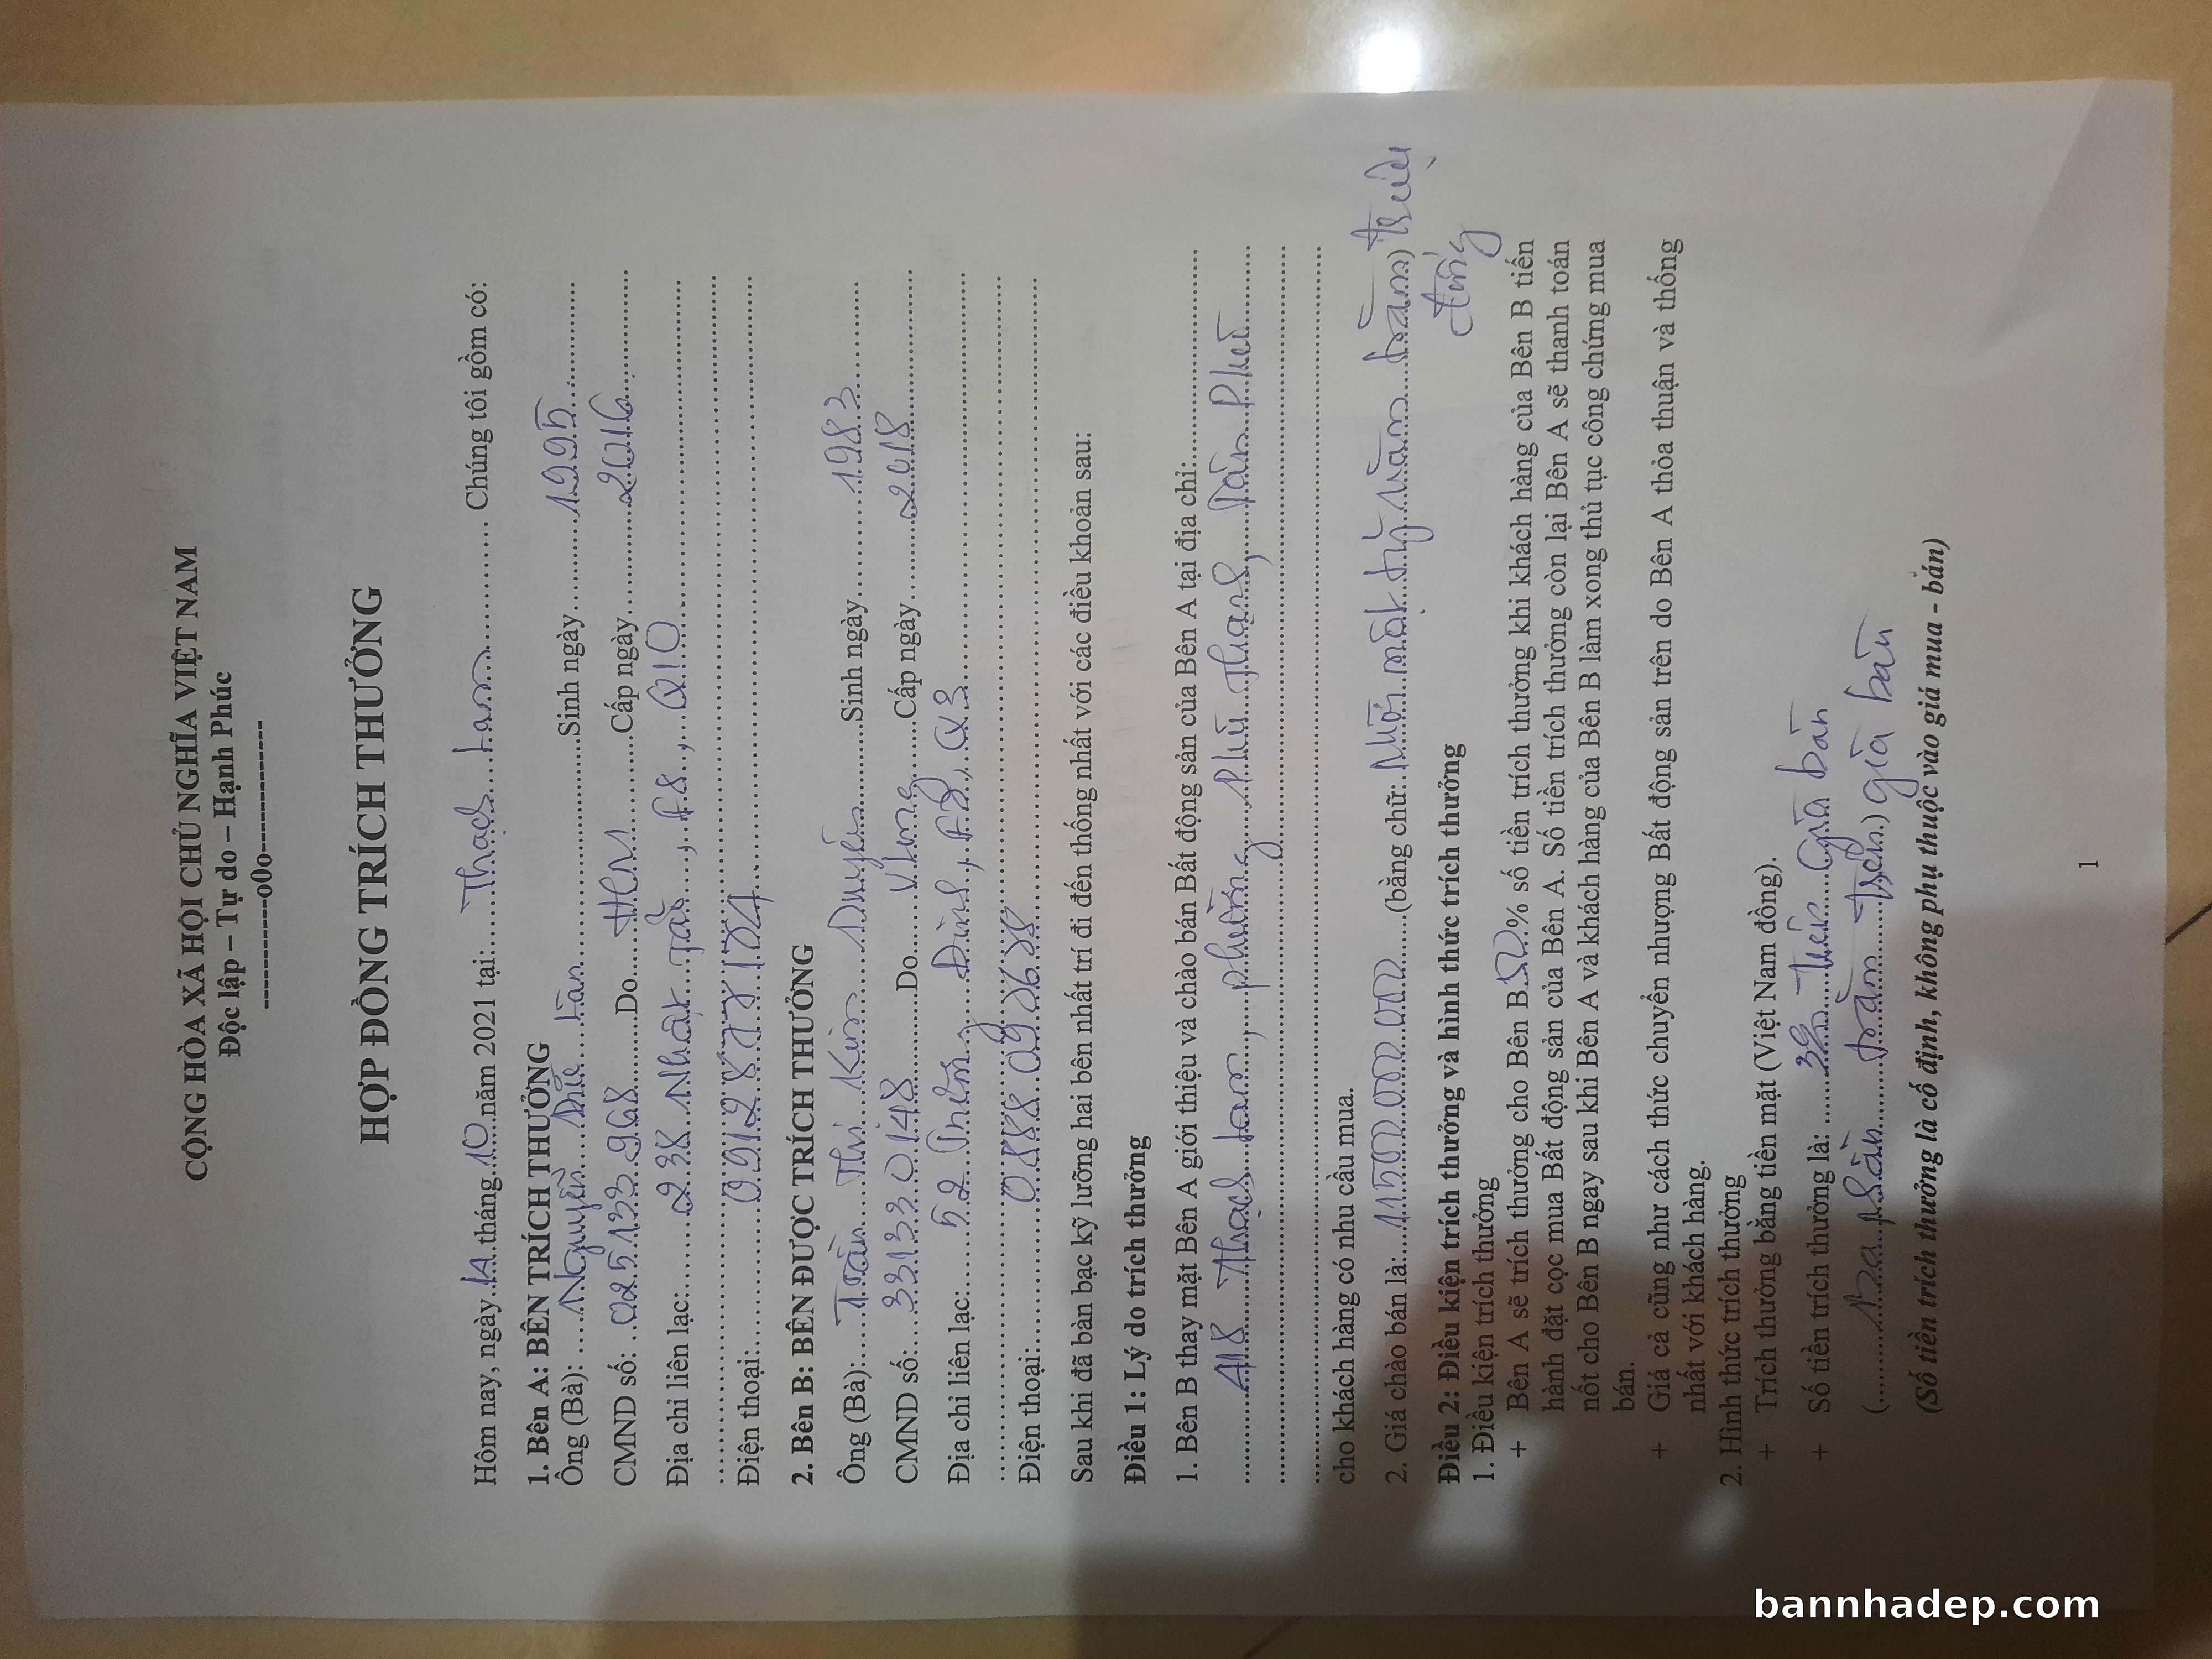 CỘNG HÒA XÃ HỘI CHỦ NGHĨA VIỆT NAM
Độc lập – Tự do – Hạnh Phúc
-----------o0o-----------
HỢP ĐỒNG TRÍCH THƯỞNG
Hôm nay, ngày 14 tháng 10 năm 2021 tại: Thạch Lam Chúng tôi gồm có:
1. Bên A: BÊN TRÍCH THƯỞNG
Ông (Bà): Nguyễn Đức Tân Sinh ngày 1995
CMND số: 025133968 Do HCM Cấp ngày 2016
Địa chỉ liên lạc: 238 Nhật Tảo, F8, Q10
Điện thoại: 0912877104
2. Bên B: BÊN ĐƯỢC TRÍCH THƯỞNG
Ông (Bà): Trần Thị Kim Duyên Sinh ngày 1983
CMND số: 331330148 Do VLong Cấp ngày 2018
Địa chỉ liên lạc: 52 Trương Định, Q3
Điện thoại: 0888 09
Sau khi đã bàn bạc kỹ lưỡng hai bên nhất trí đi đến thống nhất với các điều khoản sau:
Điều 1: Lý do trích thưởng
1. Bên B thay mặt Bên A giới thiệu và chào bán Bất động sản của Bên A tại địa chỉ:
418 Thạch Lam, phường Phú Thạnh, Tân Phú
cho khách hàng có nhu cầu mua.
2. Giá chào bán là: 11500.000.000 (bằng chữ: Mười một tỷ năm trăm) triệu
đồng
Điều 2: Điều kiện trích thưởng và hình thức trích thưởng
1. Điều kiện trích thưởng
+ Bên A sẽ trích thưởng cho Bên B 50 % số tiền trích thưởng khi khách hàng của Bên B tiến
hành đặt cọc mua Bất động sản của Bên A. Số tiền trích thưởng còn lại Bên A sẽ thanh toán
nốt cho Bên B ngay sau khi Bên A và khách hàng của Bên B làm xong thủ tục công chứng mua
bán.
+ Giá cả cũng như cách thức chuyển nhượng Bất động sản trên do Bên A thỏa thuận và thống
nhất với khách hàng.
2. Hình thức trích thưởng
+ Trích thưởng bằng tiền mặt (Việt Nam đồng).
+ Số tiền trích thưởng là: 3% Trên Giá bán
( Ba phần trăm Trên ) giá bán
(Số tiền trích thưởng là cố định, không phụ thuộc vào giá mua - bán)
1
bannhadep.com